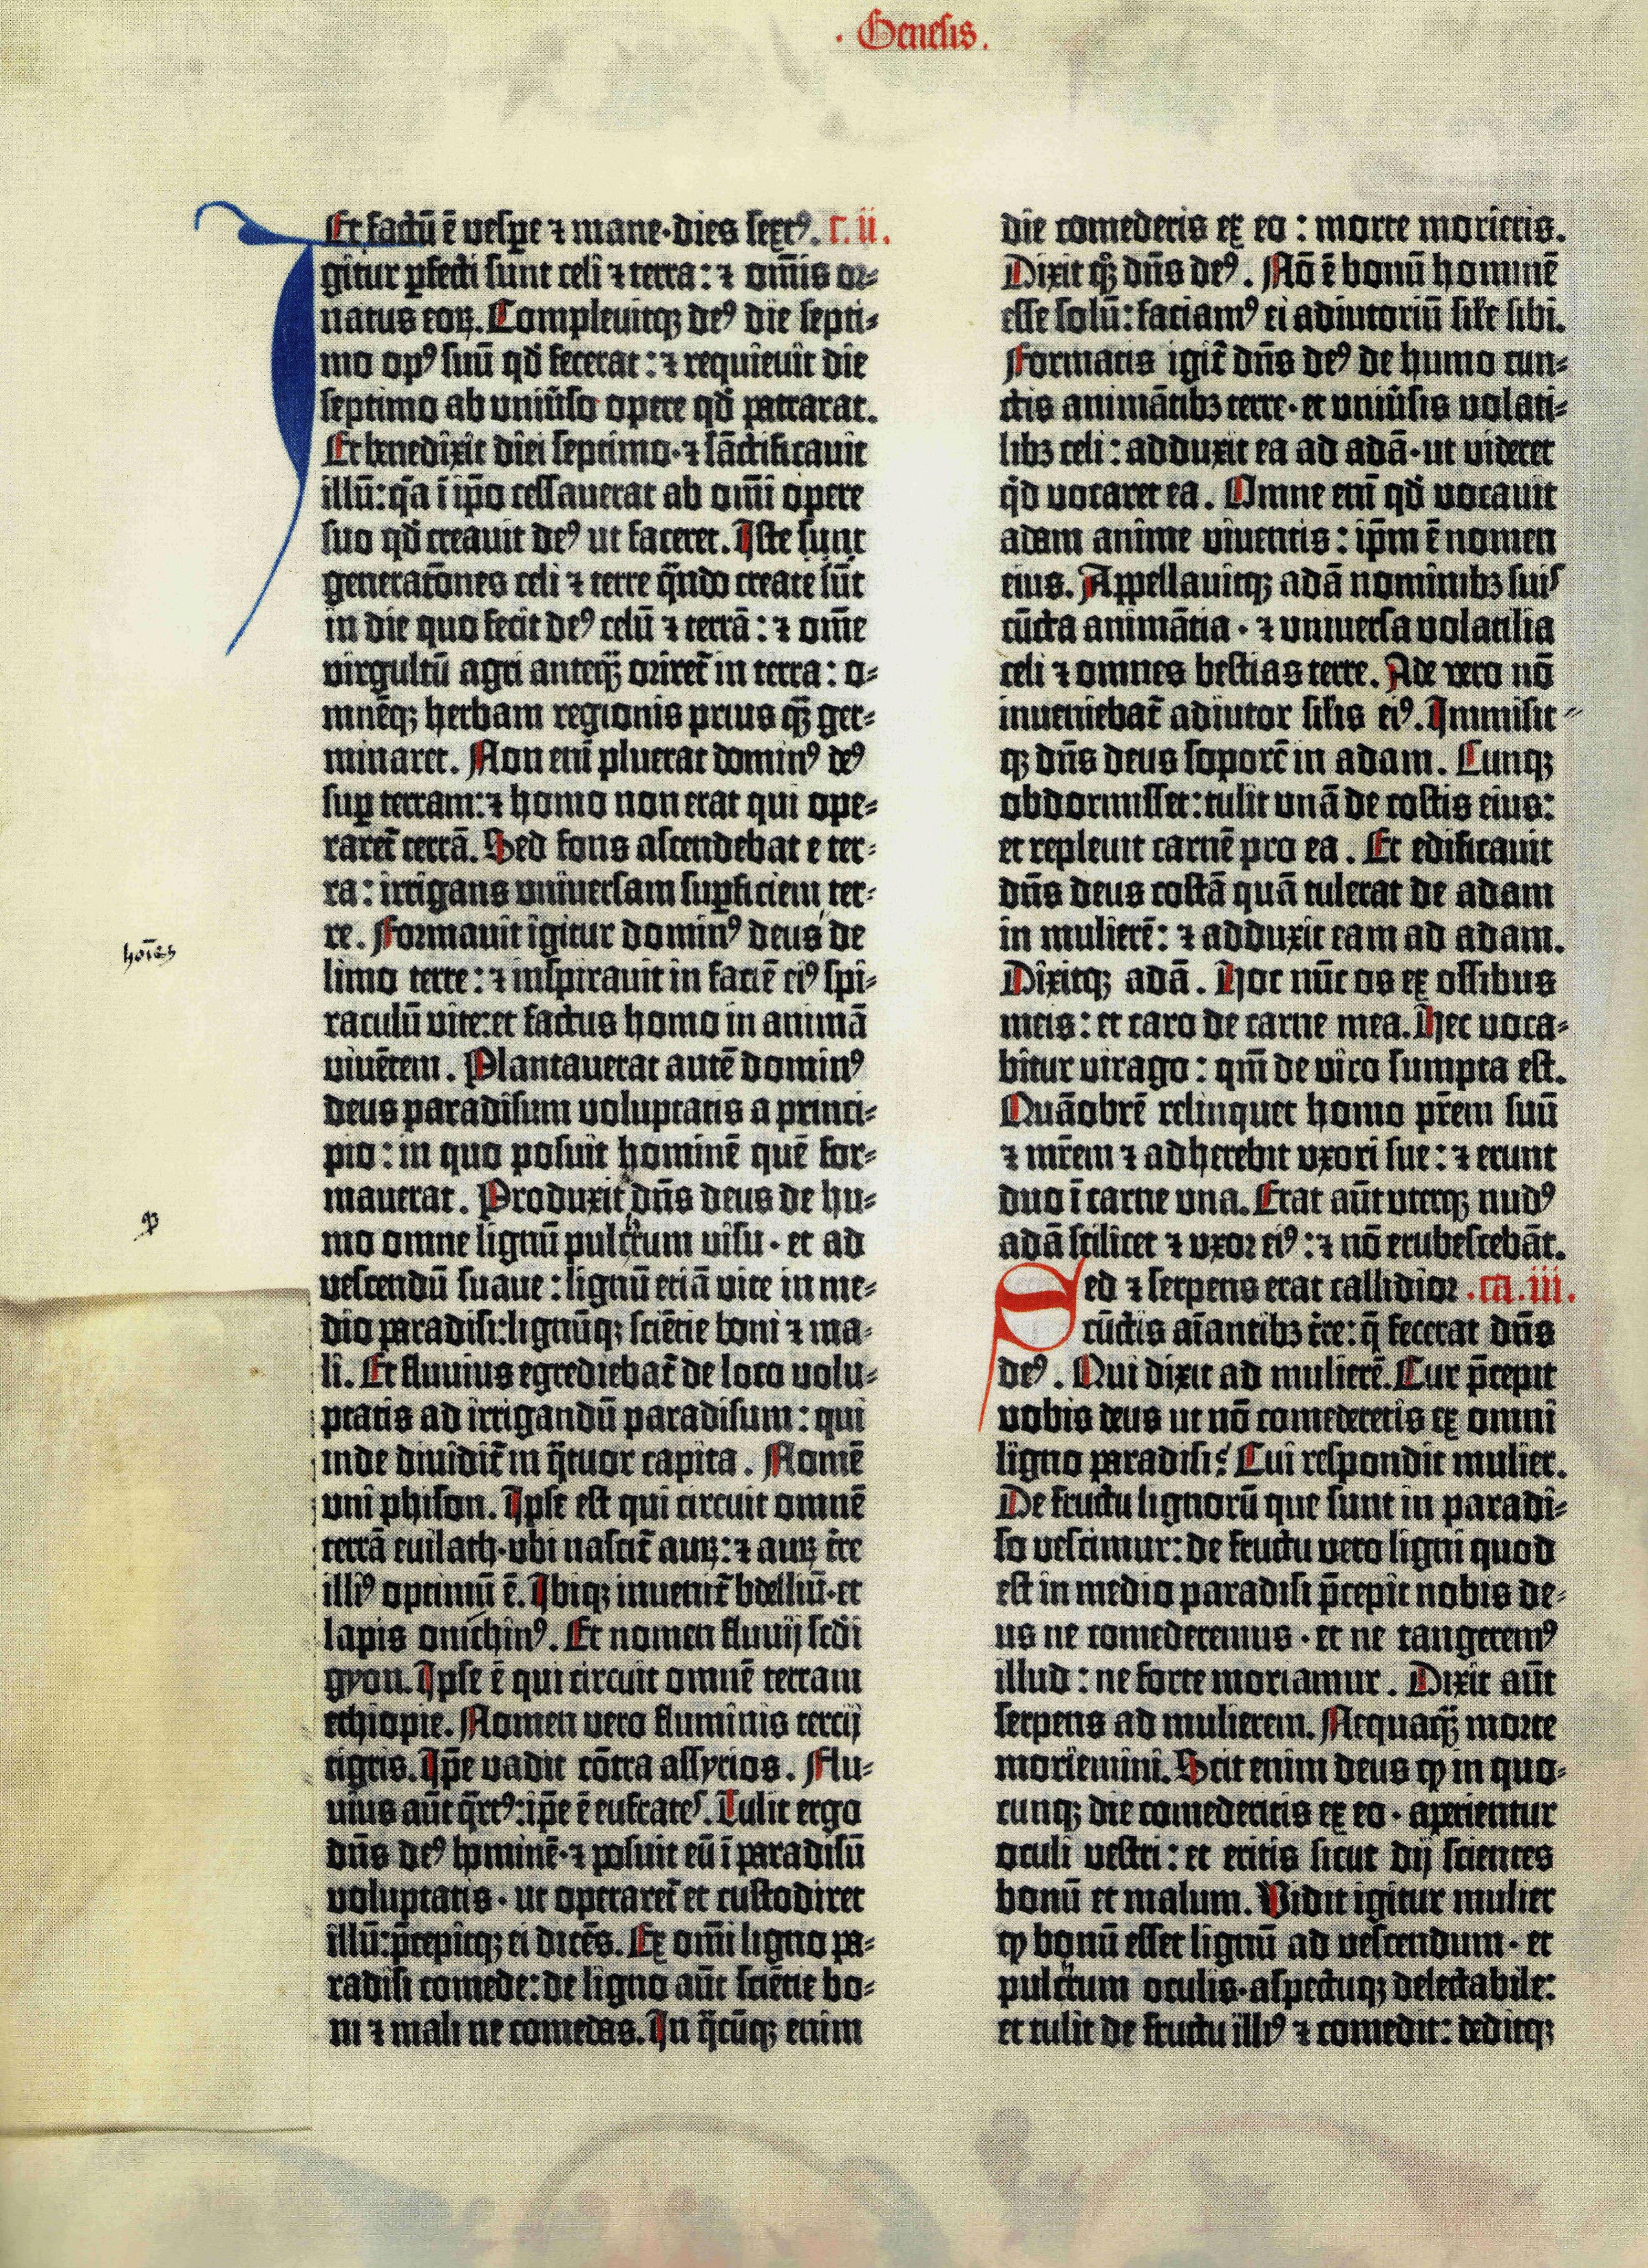 · Genesis.
Et factū ē vespe ⁊ mane·dies sextꝰ. c. ii.
Igitur ꝑfecti sunt celi ⁊ terra: ⁊ om̄is or⸗
natus eoꝝ. Compleuitqꝫ deꝰ die septi⸗
mo opꝰ suū qđ fecerat: ⁊ requieuit die
septimo ab uniūso opere qđ patrarat.
Et benedixit diei septimo·⁊ sāctificauit
illū: q̄a ī ip̄o cessauerat ab om̄i opere
suo qđ creauit deꝰ ut faceret. Iste sunt
generatōnes celi ⁊ terre q̄ndo create sūt
in die quo fecit deꝰ celū ⁊ terrā: ⁊ om̄e
virgultū agri anteq̄ꝫ oriret̄ in terra: o⸗
mnēqꝫ herbam regionis prius q̄ꝫ ger⸗
minaret. Non eni pluerat dominꝰ deꝰ
suꝑ terram: ⁊ homo non erat qui ope⸗
raret̄ terrā. Sed fons ascendebat e ter⸗
ra: irrigans universam suꝑficiem ter⸗
re. Formauit igitur dominꝰ deus de
hoīes
limo terre: ⁊ inspirauit in faciē eiꝰ spi⸗
raculū vite: et factus homo in animā
viuētem. Plantauerat autē dominꝰ
deus paradisum voluptatis a princi⸗
pio: in quo posuit hominē quē for⸗
mauerat. Produxit dn̄s deus de hu⸗
mo omne lignū pulcrum visu· et ad
vescendū suaue: lignū etiā vite in me⸗
dio paradisi: lignūqꝫ sciētie boni ⁊ ma⸗
li. Et fluvius egrediebat̄ de loco volu⸗
ptatis ad irrigandū paradisum: qui
inde diuidit̄ in q̄tuor capita. Nomē
uni phison. Ipse est qui circuit omnē
terrā euilath·ubi nascit̄ auꝝ: ⁊ auꝝ t̄re
illiꝰ optimū ē. Ibiqꝫ inuenit̄ bdelliū·et
lapis onichinꝰ. Et nomen fluuij scdi
gyon. Ipse ē qui circuit omnē terram
ethiopie. Nomen vero fluminis tercij
tigris. Ip̄e vadit cōtra assyrios. Flu⸗
uius aūt q̄rtꝰ: ip̄e ē eufrates. Tulit ergo
dn̄s deꝰ hominē·⁊ posuit eū ī paradisū
voluptatis· ut operaret̄ et custodiret
illū: p̄cepitqꝫ ei dicēs. Ex om̄i ligno pa⸗
radisi comede: de ligno aūt sciētie bo⸗
ni ⁊ mali ne comedas. In q̄cūqꝫ enim
die comederis ex eo: morte morieris.
Dixit qꝫ dn̄s deꝰ. Nō ē bonū hominē
esse solū: faciamꝰ ei adiutoriū sil̄e sibi.
Formatis igit̄ dn̄s deꝰ de humo cun⸗
ctis animātibꝫ terre· et uniūsis volati⸗
libꝫ celi: adduxit ea ad adā·ut videret
qd vocaret ea. Omne eni qđ vocauit
adam anime viuentis: ip̄m ē nomen
eius. Appellauitqꝫ adā nominibꝫ suis
cūcta animātia· ⁊ universa volatilia
celi ⁊ omnes bestias terre. Ade vero nō
inueniebat̄ adiutor sil̄is eiꝰ. Immisit⸗
qꝫ dn̄s deus soporē in adam. Cunqꝫ
obdormisset: tulit unā de costis eius:
et repleuit carnē pro ea. Et edificauit
dn̄s deus costā quā tulerat de adam
in mulierē: ⁊ adduxit eam ad adam.
Dixitqꝫ adā. Hoc nūc os ex ossibus
meis: et caro de carne mea. Hec voca⸗
bitur virago: qm̄ de viro sumpta est.
Quāobrē relinquet homo p̄rem suū
⁊ mr̄em ⁊ adherebit uxori sue: ⁊ erunt
duo ī carne una. Erat aūt uterqꝫ nudꝰ
adā scilicet ⁊ uxor eiꝰ: ⁊ nō erubescebāt.
Sed ⁊ serpens erat callidior .ca.iii.
cūctis aīantibꝫ t̄re: q̄ fecerat dn̄s
deꝰ. Qui dixit ad mulierē. Cur p̄cepit
vobis deus ut nō comederetis ex omni
ligno paradisi? Cui respondit mulier.
De fructu lignorū que sunt in paradi⸗
so vescimur: de fructu vero ligni quod
est in medio paradisi p̄cepit nobis de⸗
us ne comederemus· et ne tangeremꝰ
illud: ne forte moriamur. Dixit aūt
serpens ad mulierem. Nequaq̄ꝫ morte
moriemini. Scit enim deus ꝙ in quo⸗
cunqꝫ die comederitis ex eo· aperientur
oculi vestri: et eritis sicut dij scientes
bonū et malum. Vidit igitur mulier
ꝙ bonū esset lignū ad vescendum· et
pulcrum oculis·aspectuqꝫ delectabile:
et tulit de fructu illiꝰ ⁊ comedit: deditqꝫ